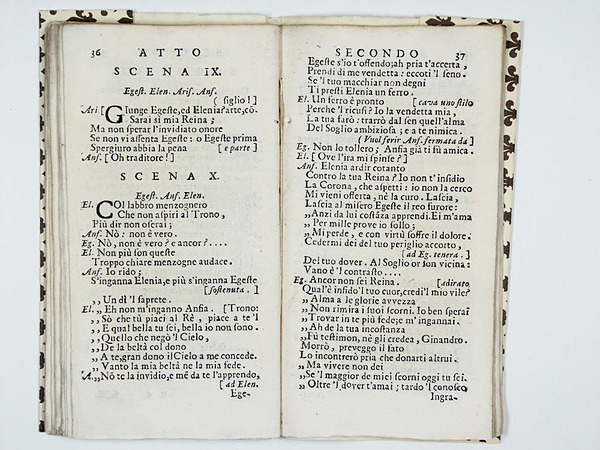 36 ATTO
SCENA IX.
Egest. Elen. Aris. Ans.
( siglio!]
Ari [GIunge Egeste, ed Elenia? arte, cō-
Sarai si mia Reina;
Ma non sperar l'invidiato onore
Se non vi assenta Egeste: o Egeste prima
Spergiuro abbia la pena [e parte]
Ans. [ Oh traditore! ]
SCENA X.
Egest. Ans. Elen.
El. COl labbro menzognero
Che non aspiri al Trono,
Più dir non oserai;
Ans. Nò: non è vero.
Eg. Nò, non è vero? e ancor? ....
El. Non più son queste
Troppo chiare menzogne audace.
Ans. Io rido;
S'inganna Elenia, e più s'inganna Egeste
[sostenuta. ]
,, Un dì 'l saprete.
El. ,, Eh non m'inganno Ansia. [Trono:
,, Sò che tù piaci al Rè, piace a te'l
,, E qual bella tu sei, bella io non sono.
,, Quello che negò 'l Cielo,
,, De la beltà col dono
,, A te, gran dono il Cielo a me concede.
,, Vanto la mia beltà ne la mia fede.
'A. ,, Nō te la invidio, e mé da te l'apprendo,
[ ad Elen.
Ege-
SECONDO 37
Egeste s'io t'offendo; ah pria t'accerta,
Prendi di me vendetta: eccoti 'l seno.
Se 'l tuo macchiar non degni
Ti presti Elenia un ferro.
El. Un ferro è pronto [ cava uno stilo
Perche 'l ricusi? Io la vendetta mia,
La tua farò: trarrò dal sen quell'alma
Del Soglio ambiziosa; e a te nimica.
(Vuol ferir Ans. fermata da]
Eg. Non lo tollero; Ansia già ti fù amica.
El. [ Ove l'ira mi spinse? ]
Ans. Elenia ardir cotanto
Contro la tua Reina? Io non t'insidio
La Corona, che aspetti: io non la cerco
Mi vieni offerta, nè la curo. Lascia,
Lascia al misero Egeste il reo furore:
,, Anzi da lui costāza apprendi. Ei m'ama
,, Per mille prove io sollo;
,, Mi perde, e con virtù soffre il dolore.
Cedermi dei del tuo periglio accorto,
[ad Eg. tenera. ]
Dei tuo dover. Al Soglio or son vicina:
Vano è 'l contrasto ....
Eg. Ancor non sei Reina. [adirato
Qual'è infido 'l tuo cuor, credi 'l mio vile?
,, Alma a le glorie avvezza
,, Non rimira i suoi scorni. Io ben sperai
,, Trovar in te più fede; e m'ingannai.
,, Ah de la tua incostanza
,, Fù testimon, nè gli credea, Ginandro.
Morrò, preveggo il fato
Lo incontrerò pria che donarti altrui.
,, Ma vivere non dei
,, Se 'l maggior de miei scorni oggi tu sei.
,, Oltre 'l dover t'amai; tardo 'l conosco
Ingra-